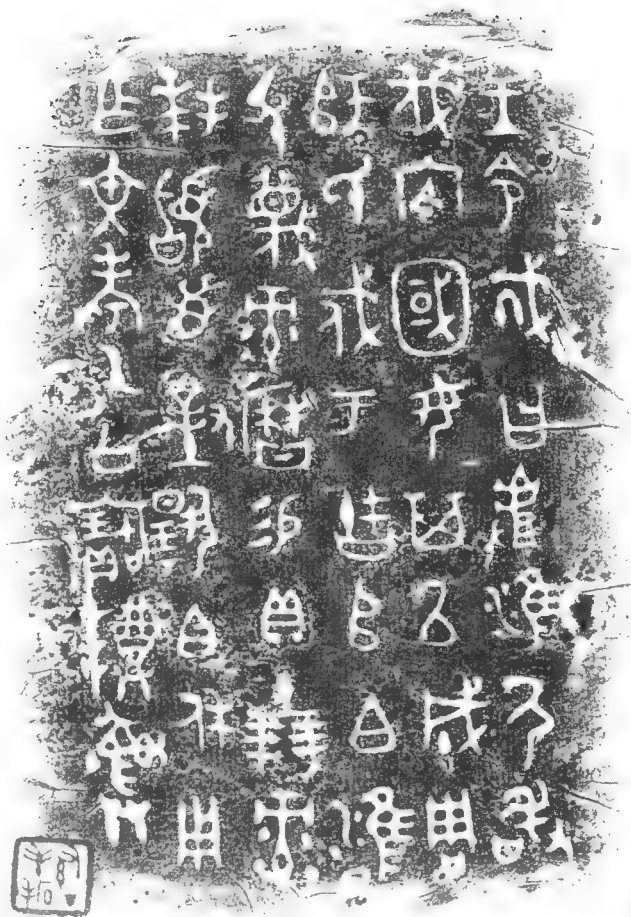 王令𢦚曰𠭯淮尸敢
伐內國女其以成周
師氏戍于古𠂤白雝
父蔑彔曆易貝十朋彔
拜䭫首對揚白休用
乍文考乙公寶尊彝